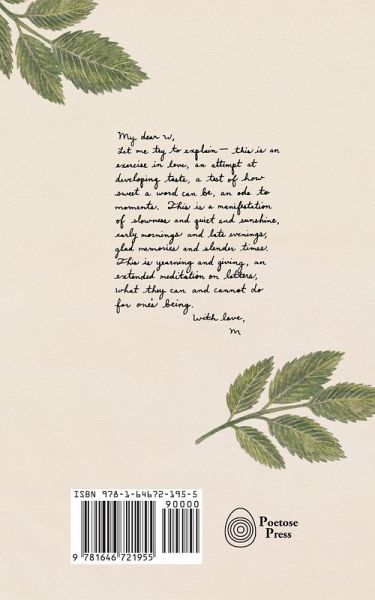 My dear W,
Let me try to explain — this is an
exercise in love, an attempt at
developing taste, a test of how
sweet a word can be, an ode to
moments. This is a manifestation
of slowness and quiet and sunshine,
early mornings and late evenings,
glad memories and slender times.
This is yearning and giving, an
extended meditation on letters,
what they can and cannot do
for one's being.
With love,
M
ISBN 978-1-64672-195-5
90000
9 781646 721955
Poetose
Press